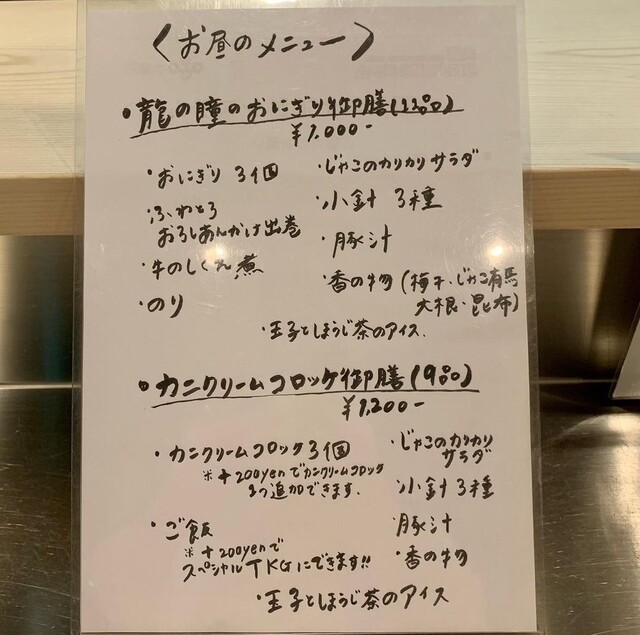 〈お昼のメニュー〉
・龍の瞳のおにぎり御膳(13品)
¥1,000-
・おにぎり 3個
・ふわとろ
おろしあんかけ出巻
・牛のしぐれ煮
・のり
・じゃこのカリカリサラダ
・小鉢 3種
・豚汁
・香の物(梅干・じゃこ有馬
大根・昆布)
・玉子とほうじ茶のアイス.
・カニクリームコロッケ御膳(9品)
¥1,200-
・カニクリームコロッケ3個
※+200yenでカニクリームコロッケ
1つ追加できます.
・ご飯
※+200yenで
スペシャルTKGにできます!!
・じゃこのカリカリ
サラダ
・小鉢3種
・豚汁
・香の物
・玉子とほうじ茶のアイス